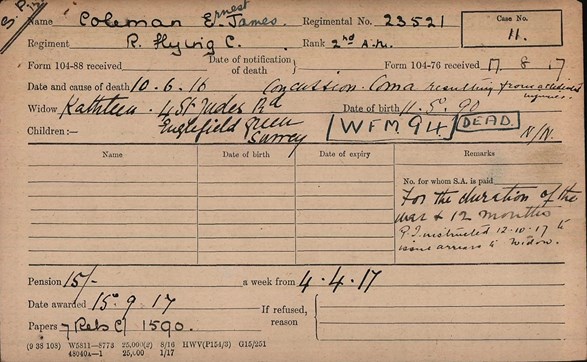 S.P.
Name Coleman E. Ernest James Regimental No. 23521 Case No. 11.
Regiment R. Flying C. Rank 2nd A.M.
Form 104-88 received Date of notification of death Form 104-76 received 17 8 17
Date and cause of death 10.6.16 Concussion. Coma resulting from accidental injuries.
Widow Kathleen. 4 St Judes Rd Date of birth 11.5.90
Children:— Englefield Green WFM 94 DEAD. N/N.
Surrey
Name Date of birth Date of expiry Remarks
No. for whom S.A. is paid
For the duration of the
war & 12 months
instructed 12-10-17 to
issue arrears to Widow.
Pension 15/- a week from 4.4.17
Date awarded 15.9.17 If refused, reason
Papers 1590.
(9 38 108) W5811—8773 25,000(2) 8/16 HWV(P154/3) G15/251
48040A—1 25,000 1/17